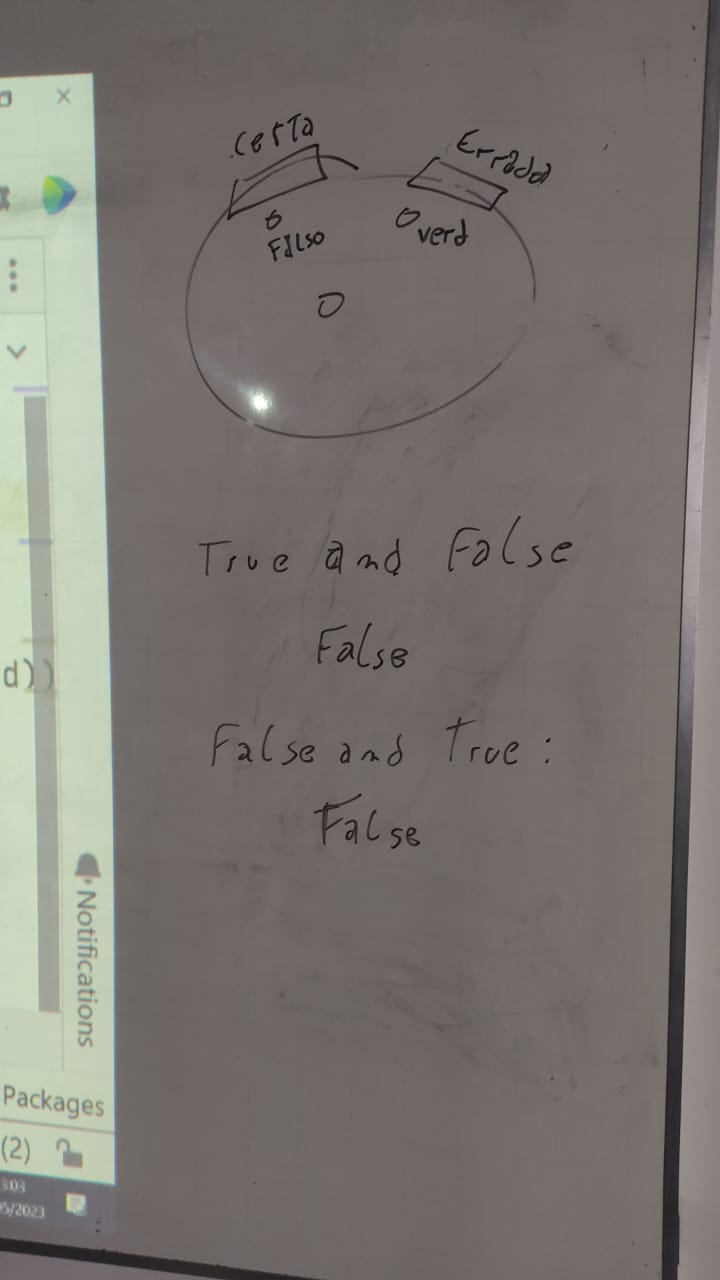 certa
Errada
Falso
verd
True and False
False
False and True:
False
d))
Notifications
Packages
(2)
3:03
05/2023